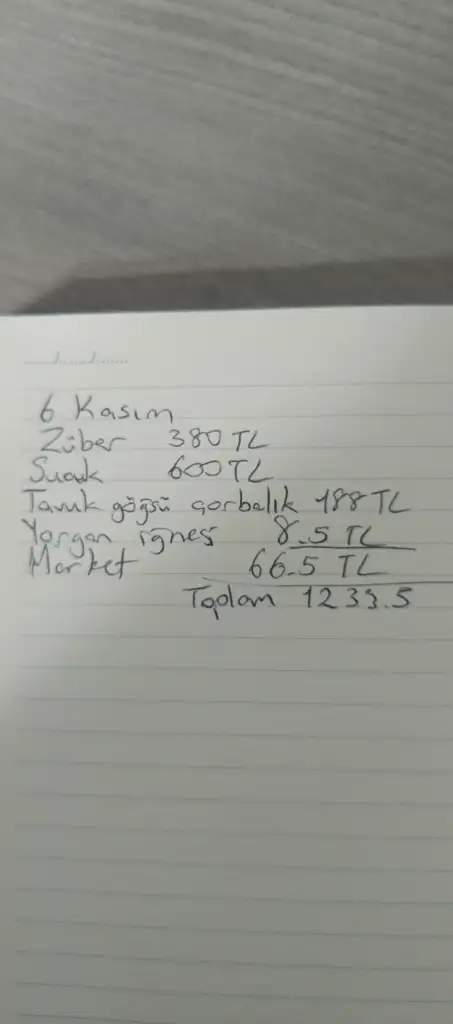 6 Kasım
Züber 380 TL
Suak 600 TL
Tavuk göğsü çorbalık 188 TL
Yorgan iğnesi 8.5 TL
Market 66.5 TL
Toplam 1233.5